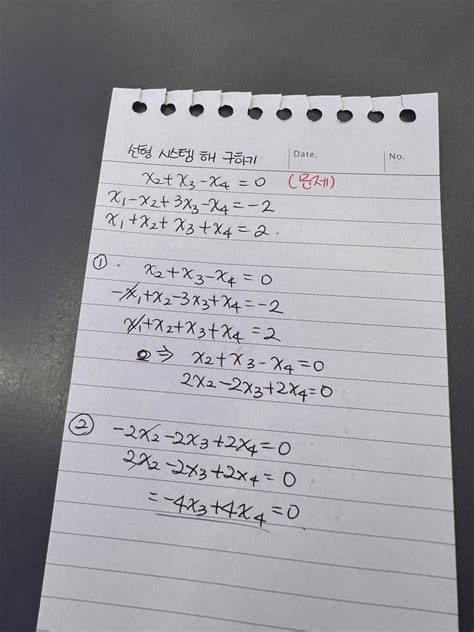 선형 시스템 해 구하기 Date. No.
x₂+x₃-x₄=0 (문제)
x₁-x₂+3x₃-x₄=-2
x₁+x₂+x₃+x₄=2.
① x₂+x₃-x₄=0
-x₁+x₂-3x₃+x₄=-2
x₁+x₂+x₃+x₄=2
⇒ x₂+x₃-x₄=0
2x₂-2x₃+2x₄=0
② -2x₂-2x₃+2x₄=0
2x₂-2x₃+2x₄=0
=-4x₃+4x₄=0